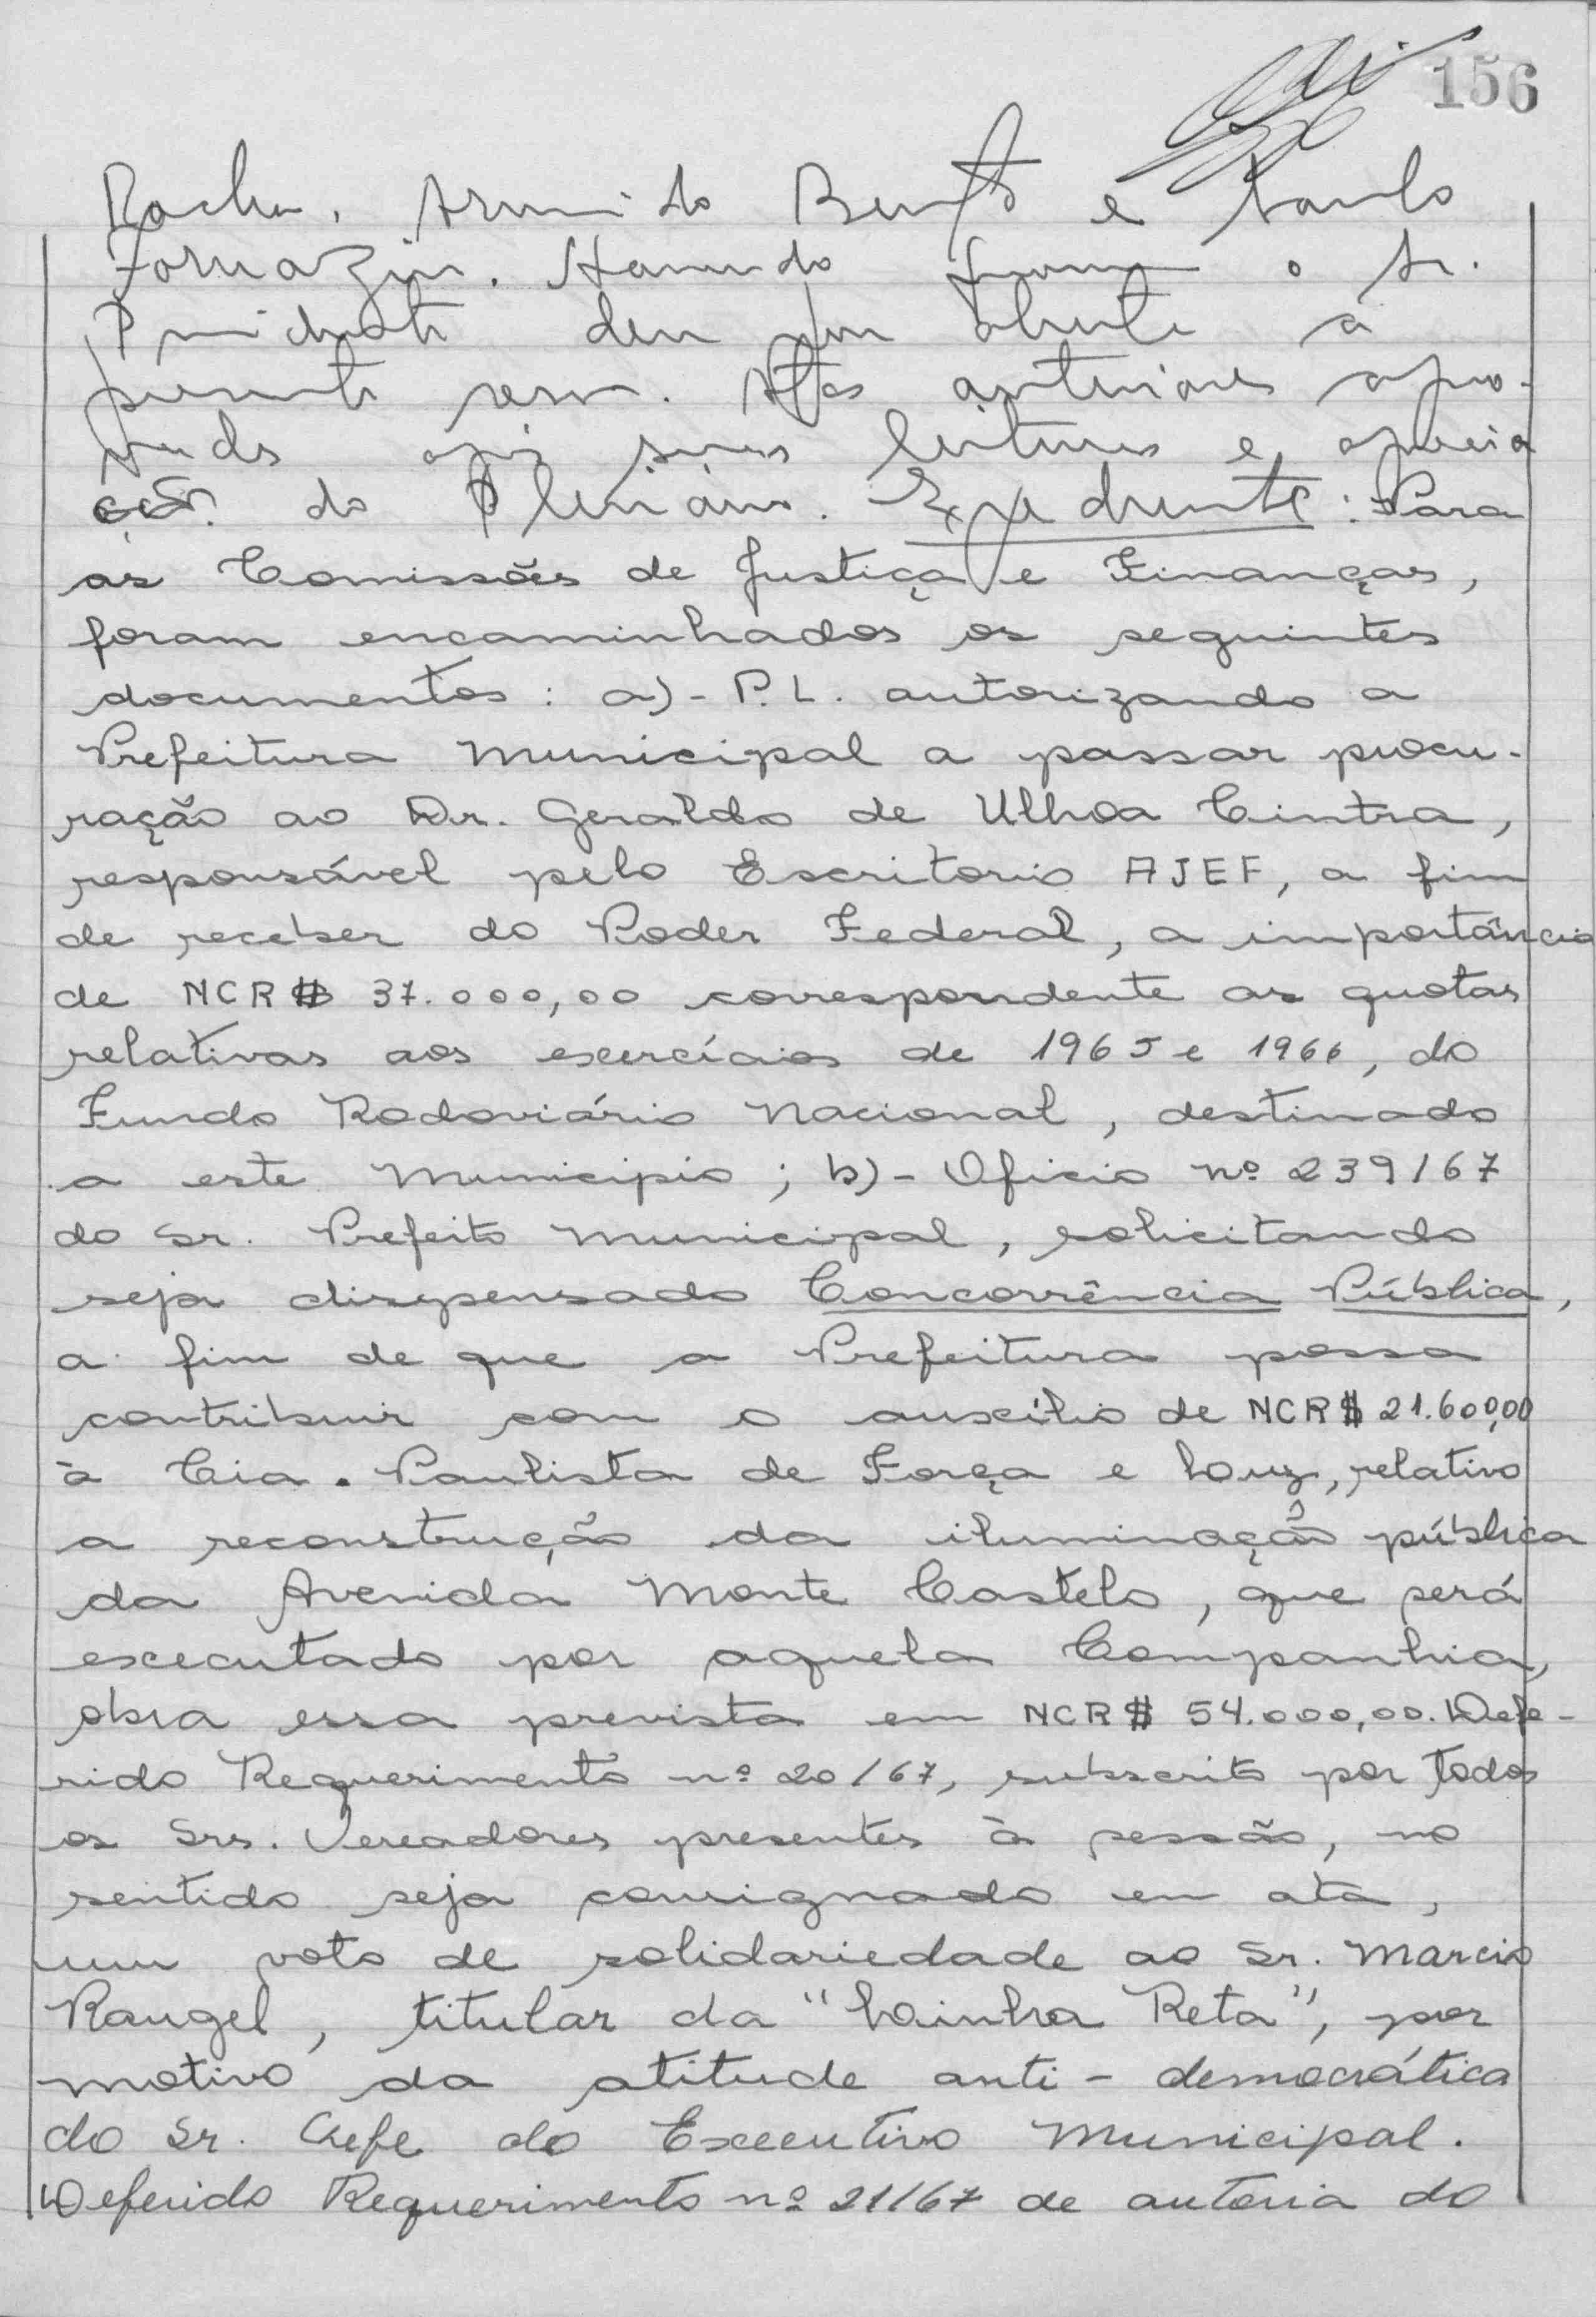 156
Rocha, Armindo Bento e Paulo
Fornazin. Havendo o Sr.
Presidente deu por aberta a
presente . Atas anteriores apro-
vadas após suas leituras e aprecia
ção do Plenário. Expediente: Para
as Comissões de Justiça e Finanças,
foram encaminhados os seguintes
documentos: a)- P.L. autorizando a
Prefeitura Municipal a passar procu-
ração ao Dr. Geraldo de Ulhoa Cintra,
responsável pelo Escritorio AJEF, a fim
de receber do Poder Federal, a importância
de NCR$ 37.000,00 correspondente as quotas
relativas aos exercícios de 1965 e 1966, do
Fundo Rodoviário Nacional, destinado
a este Municipio; b)- Oficio nº 239/67
do Sr. Prefeito Municipal, solicitando
seja dispensado Concorrência Pública,
a fim de que a Prefeitura possa
contribuir com o auxílio de NCR$ 21.600,00
à Cia. Paulista de Força e Luz, relativo
a reconstrução da iluminação pública
da Avenida Monte Castelo, que será
executado por aquela Companhia,
obra essa prevista em NCR$ 54.000,00. Defe-
rido Requerimento nº 20/67, subscrito por todos
os Srs. Vereadores presentes à sessão, no
sentido seja consignado em ata,
um voto de solidariedade ao Sr. Marcio
Rangel, titular da "Linha Reta", por
motivo da atitude anti-democrática
do Sr. Chefe do Executivo Municipal.
Deferido Requerimento nº 21/67 de autoria do